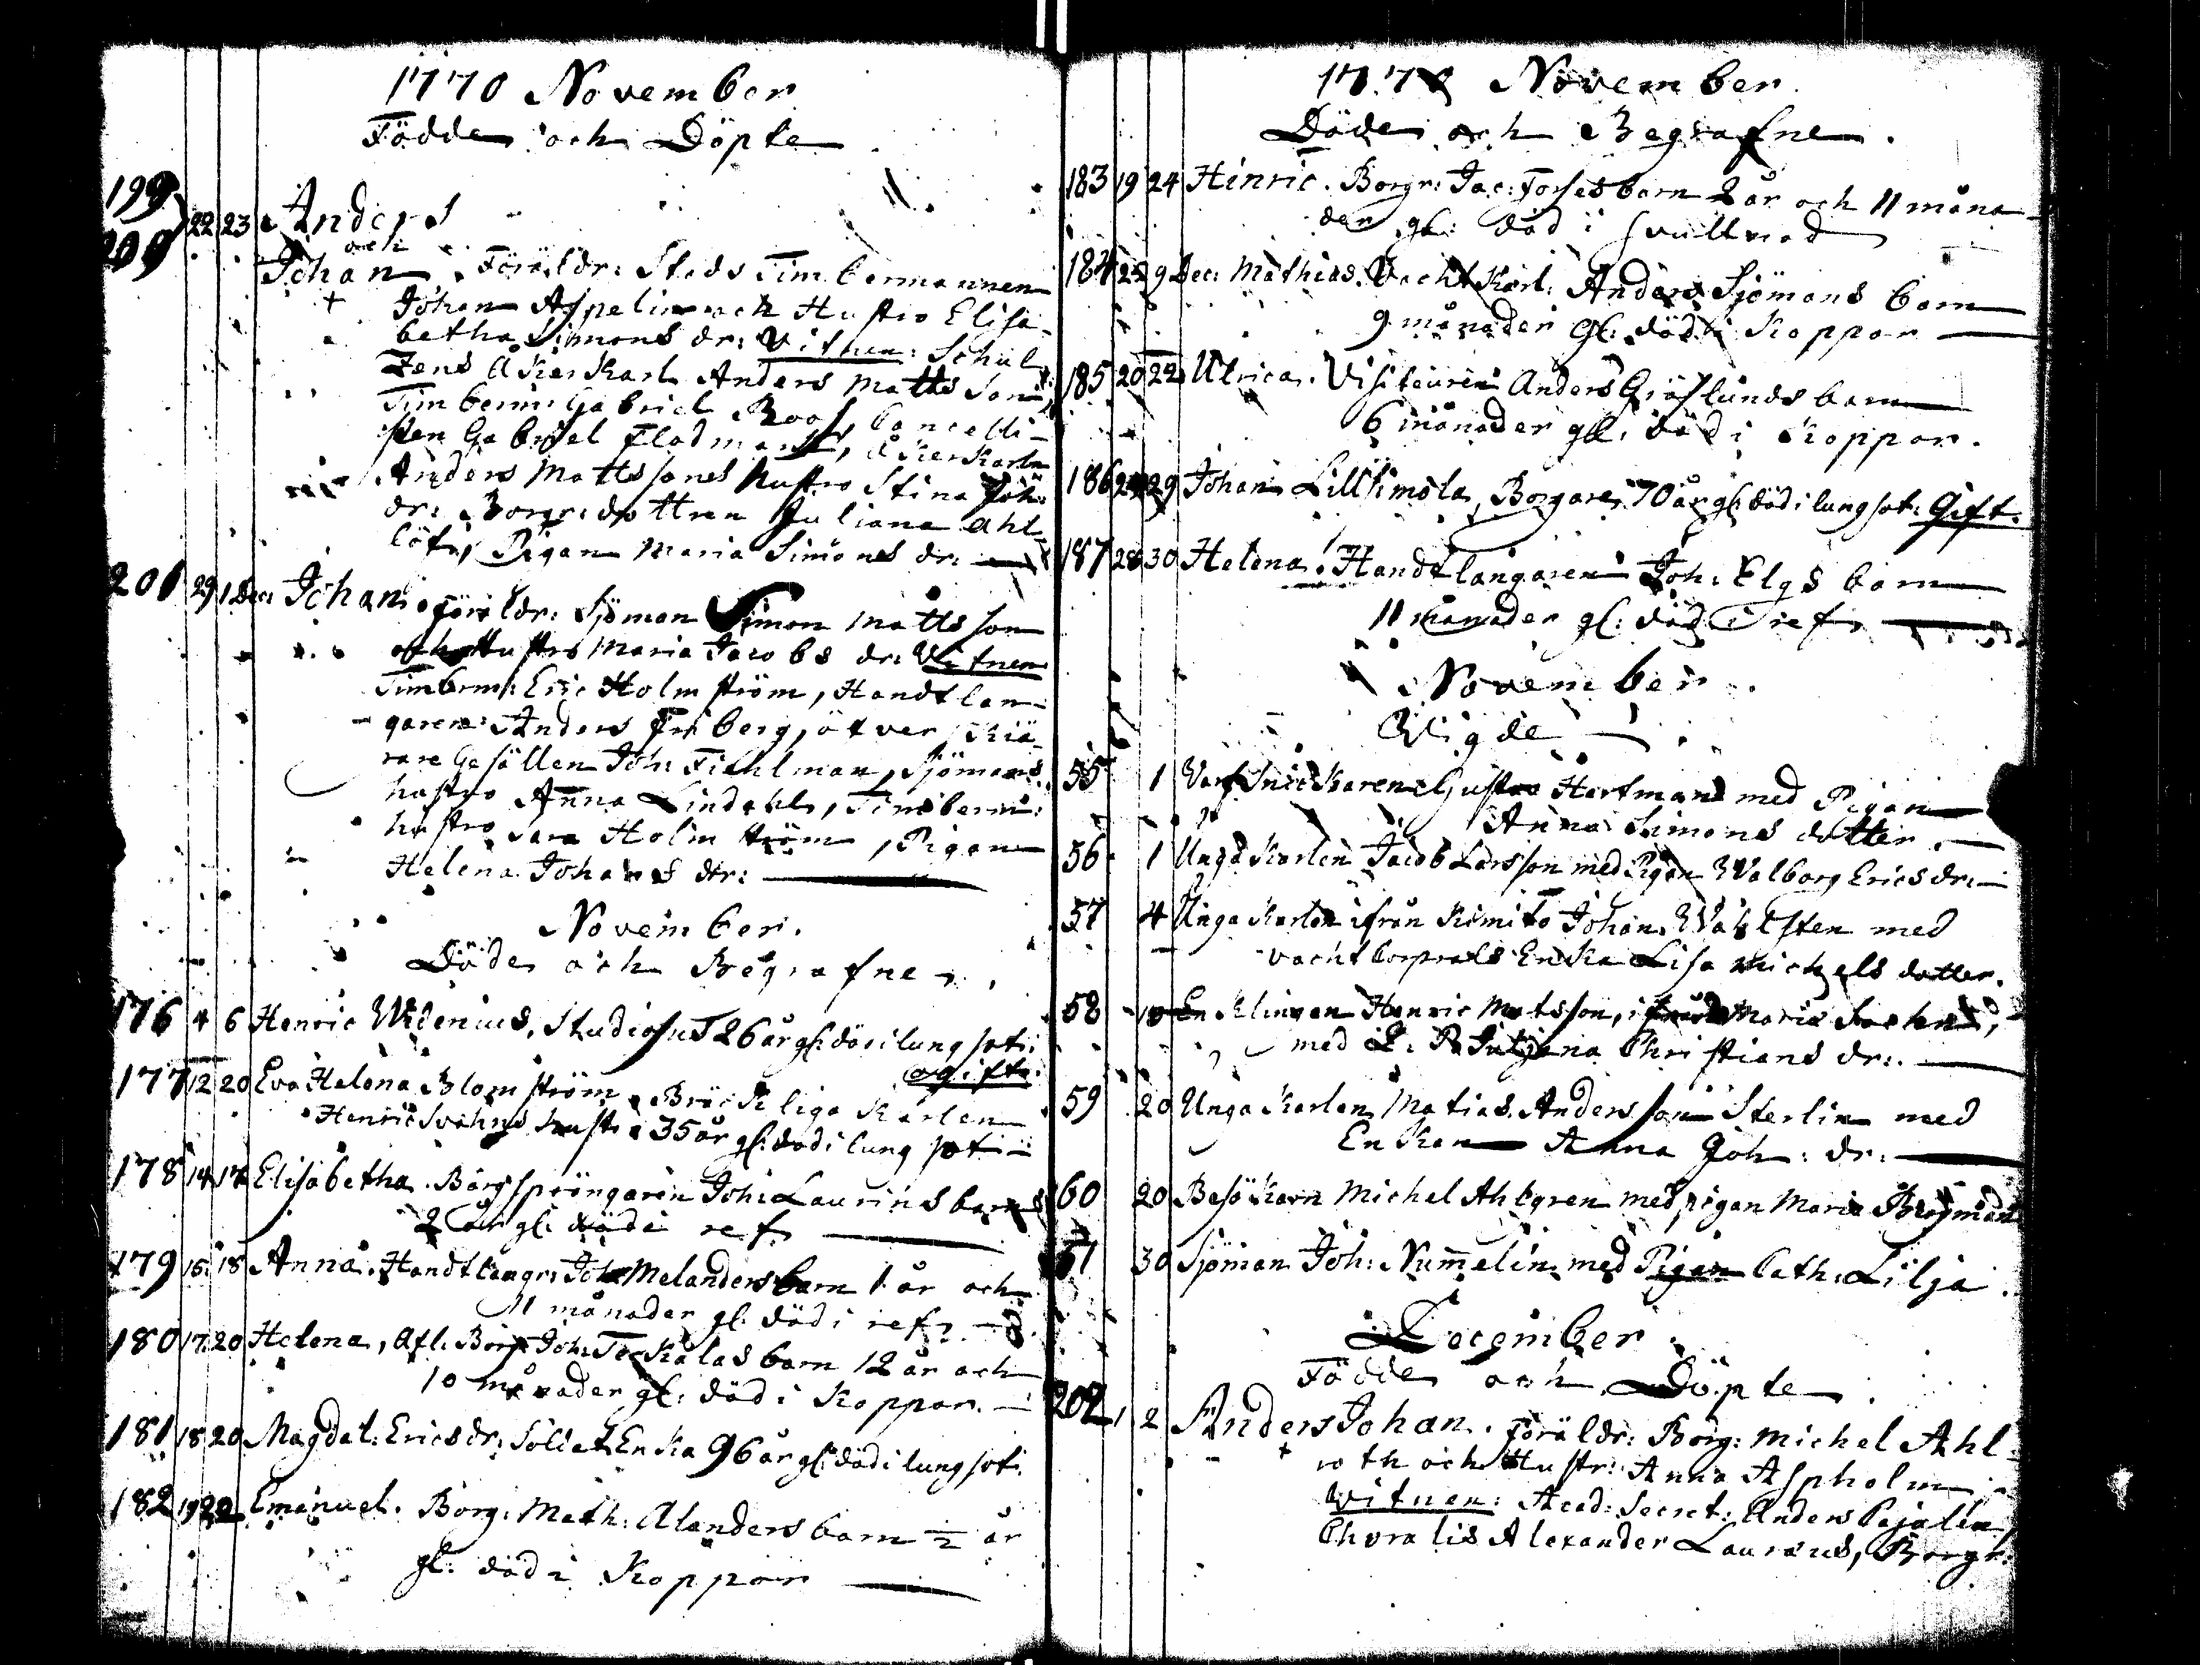 1770 November
Födde och Döpte
199 22 23 Anders
och
200 Johan. Föräldr: Stads Timbermannen
+ Johan Aspelin och Hustro Elisa-
betha Simons dr: Vitnen: Schul
tens åkerkarl Anders Mattsson,
Timberm: Gabriel Roos, Cancelli-
sten Gabriel Flodmark, åkerkarln
Anders Mattssons hustro Stina Joh:
dr: Borgr: dottren Juliana Ahl-
löf, Pigan Maria Simons dr:
201 29 1 Dec: Johan. Föräldr: Sjöman Simon Mattsson
och Hustro Maria Jacobs dr: Vitnen
Timberm: Eric Holmström, Handtlan-
garen: Anders Friberg, ötver skiä-
rare Gesällen Joh: Fiehlman, Sjömans
hustro Anna Lindahl, Timberm:
hustro Sara Holmström, Pigan
Helena Johans dr:
November.
Döde och Begrafne.
176 4 6 Henric Widenius, Studiosus 26 år gl: död i lungsot:
ogift.
177 12 20 Eva Helena Blomström, Bräckliga Karlen
Henric Svahns hustr: 35 år gl: död i lungsot:
178 14 17 Elisabetha. Bärgsprängaren Joh: Laurins barn
2 år gl: död i ref
179 15 18 Anna. Handtlangr: Joh: Melanders barn 1 år och
11 månader gl: död i ref
180 17 20 Helena, Afl: Borgr Joh: Torkälas barn 12 år och
10 månader gl: död i Koppor.
181 18 20 Magdal: Ericsdr: Soldat Enka 96 år gl: död i lungsot.
182 19 22 Emanuel. Borg: Math: Alanders barn ½ år
gl: död i Koppor
1770 November.
Döde och Begrafne.
183 19 24 Hinric. Borgr: Jac: Forses barn 2 år och 11 måna-
der gl: död i svullnad
184 25 9 Dec: Mathias. Vachtkarl: Anders Sjömans barn
9 månader gl: död i Koppor
185 20 22 Ulrica. Visiteuren Anders Gräslunds barn
6 månader gl: död i Koppor.
186 24 29 Johan Lillhimola, Borgare 70 år gl: död i lungsot: Gift.
187 28 30 Helena. Handtlangaren Joh: Elgs barn
11 månader gl: död i ref
November
Vigde
55 1 Varf Snickaren Gustav Hartman med Pigan
Anna Simons dotter.
56 1 Unga Karlen Jacob Larsson med Pigan Walborg Ericsdr:
57 4 Unga Karlen ifrån Kimito Johan Wahlsten med
vacht Corprals Enka Lisa Michels dotter.
58 Enklingen Henric Matsson, ifrån Marie Sochn,
med Christians dr:
59 20 Unga Karlen Matias Andersson Sterlin med
Enkan Anna Joh: dr:
60 20 Besökarn Michel Ahlgren med pigan Maria Bergman
61 30 Sjöman Joh: Num̄elin med Pigan Cath: Lilja.
December
Födde och Döpte
202 1 2 Anders Johan. Föräldr: Borg: Michel Ahl-
+ roth och Hustr: Anna Aspholm
Vitnen: Acad: Secret: Anders Pajalin,
Choralis Alexander Lauræus, Borgr: